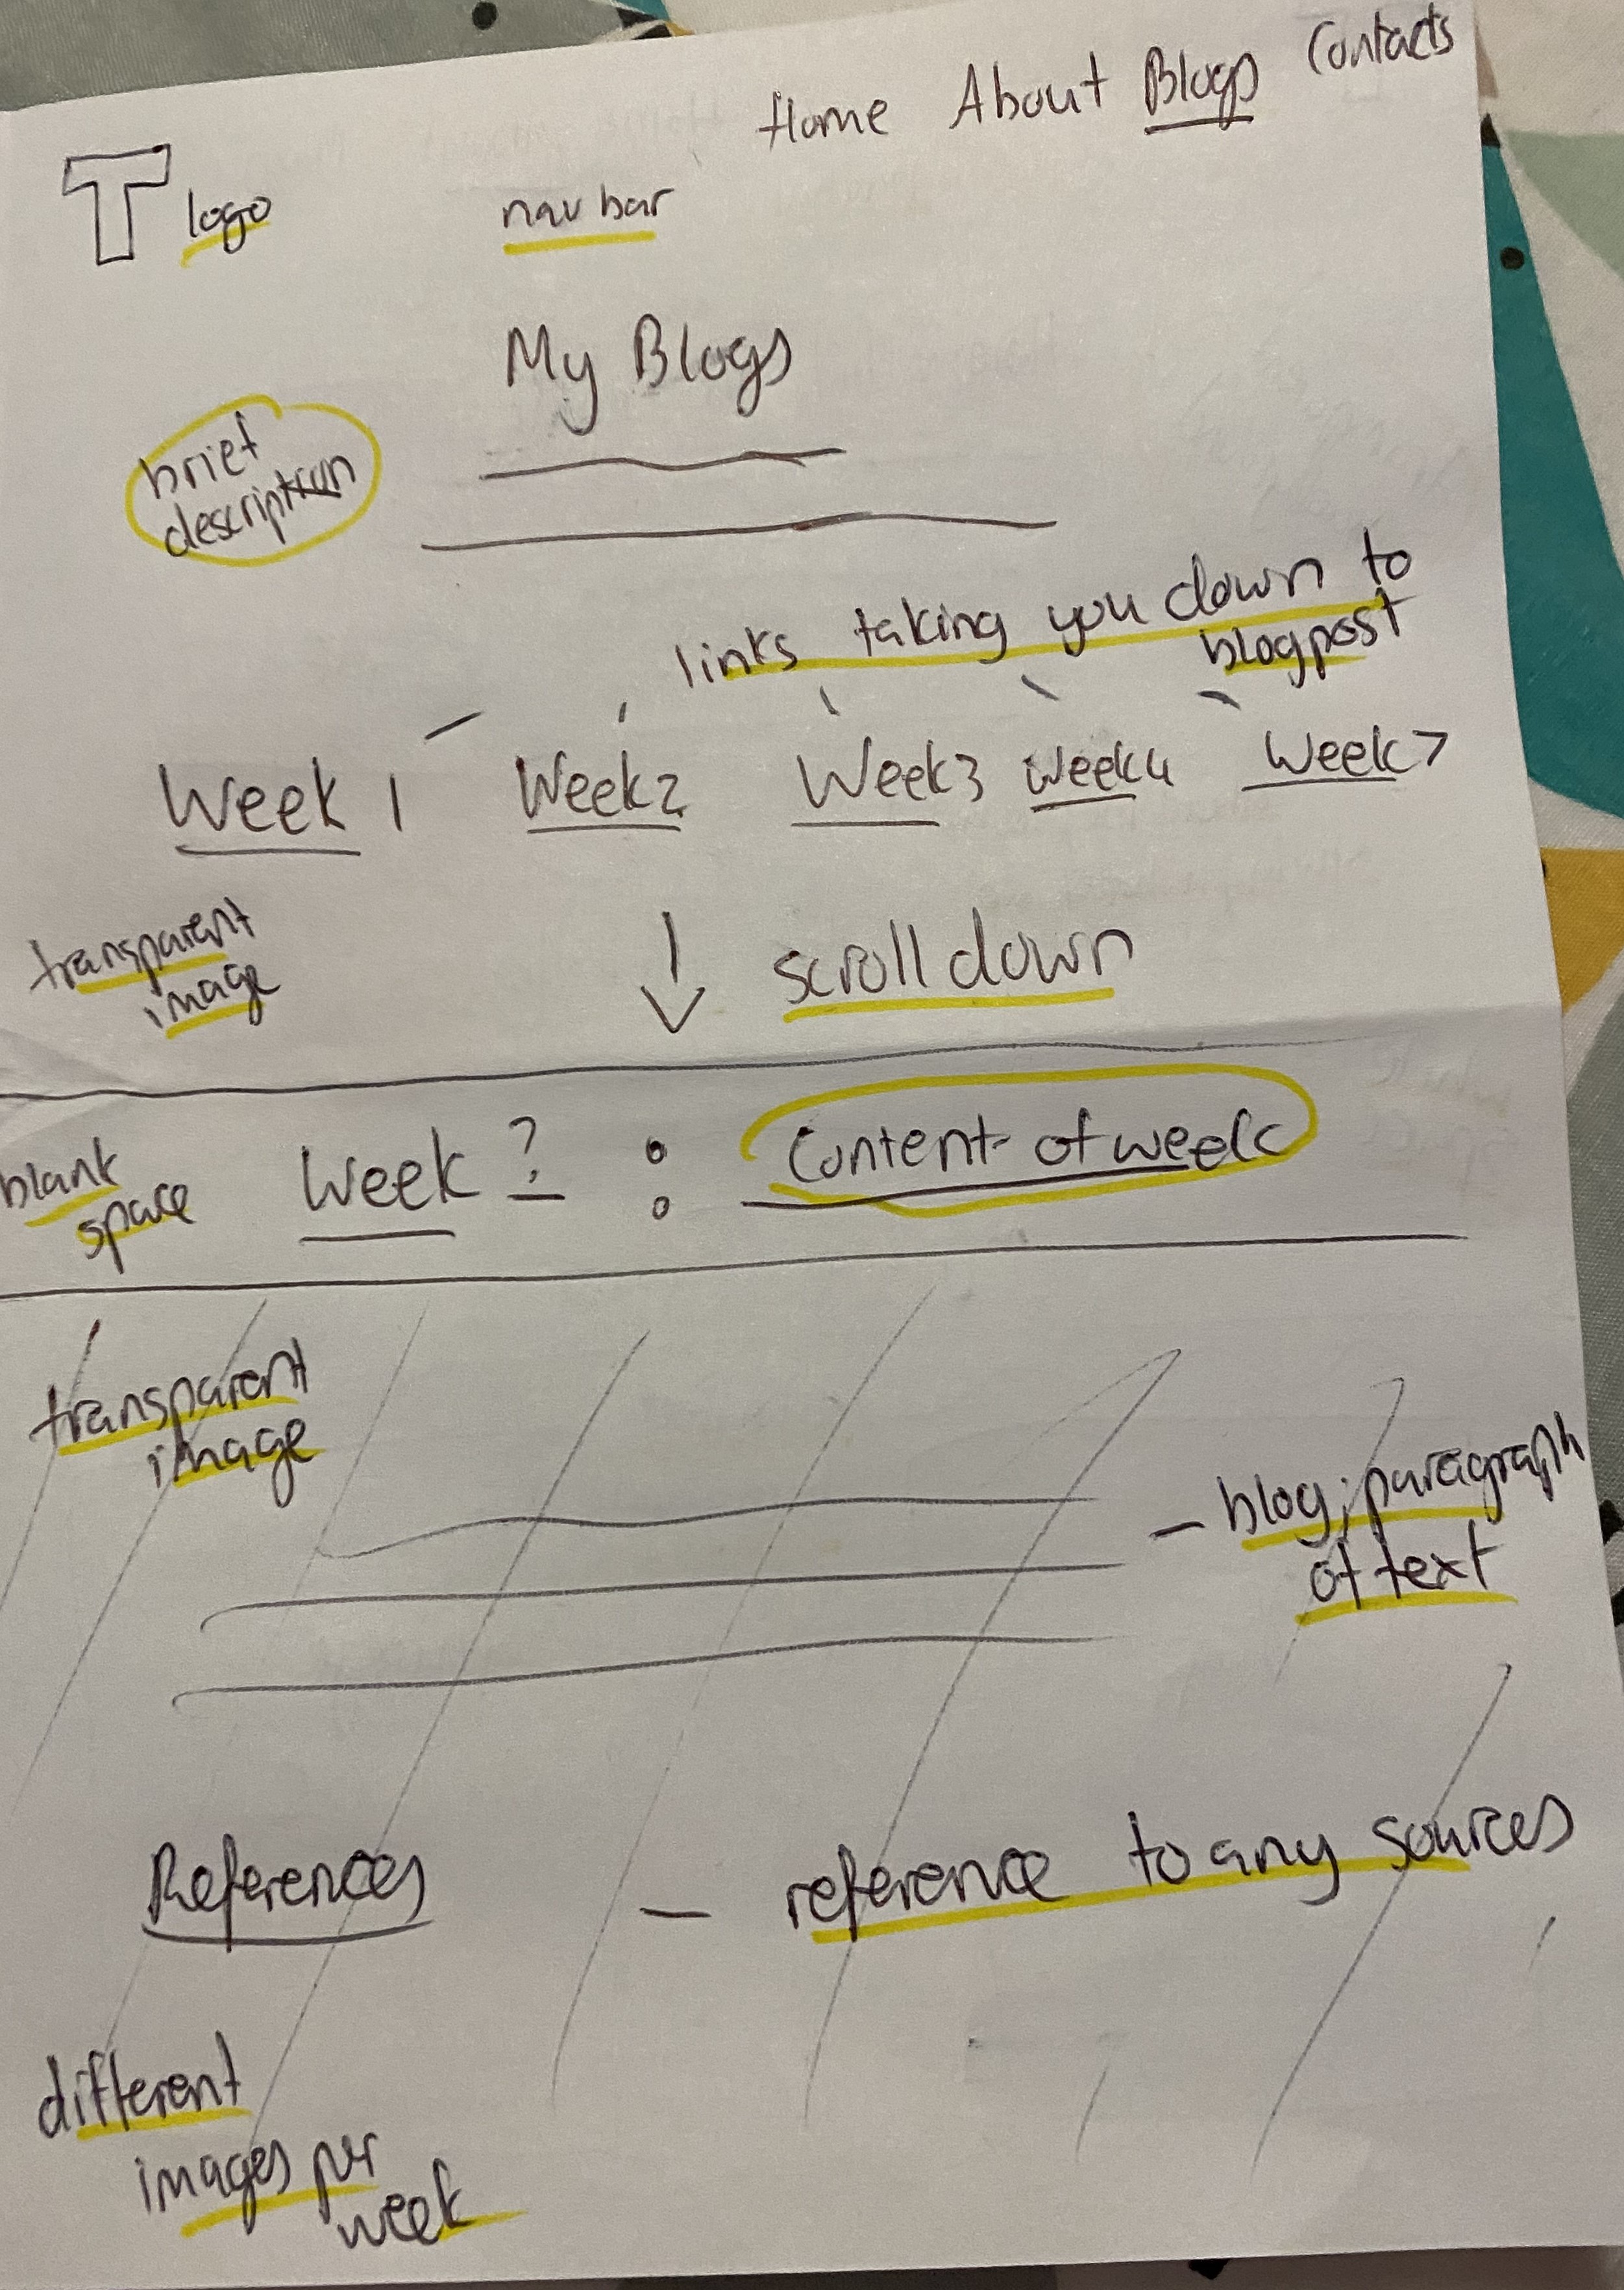 Home About Blogs Contacts
T logo
nav bar
My Blogs
brief
description
links taking you down to
blogpost
Week 1 Week2 Week3 Week4 Week7
transparent
image
scroll down
blank
space
Week ? : Content of week
transparent
image
- blog; paragraph
of text
References - reference to any sources
different
images per
week